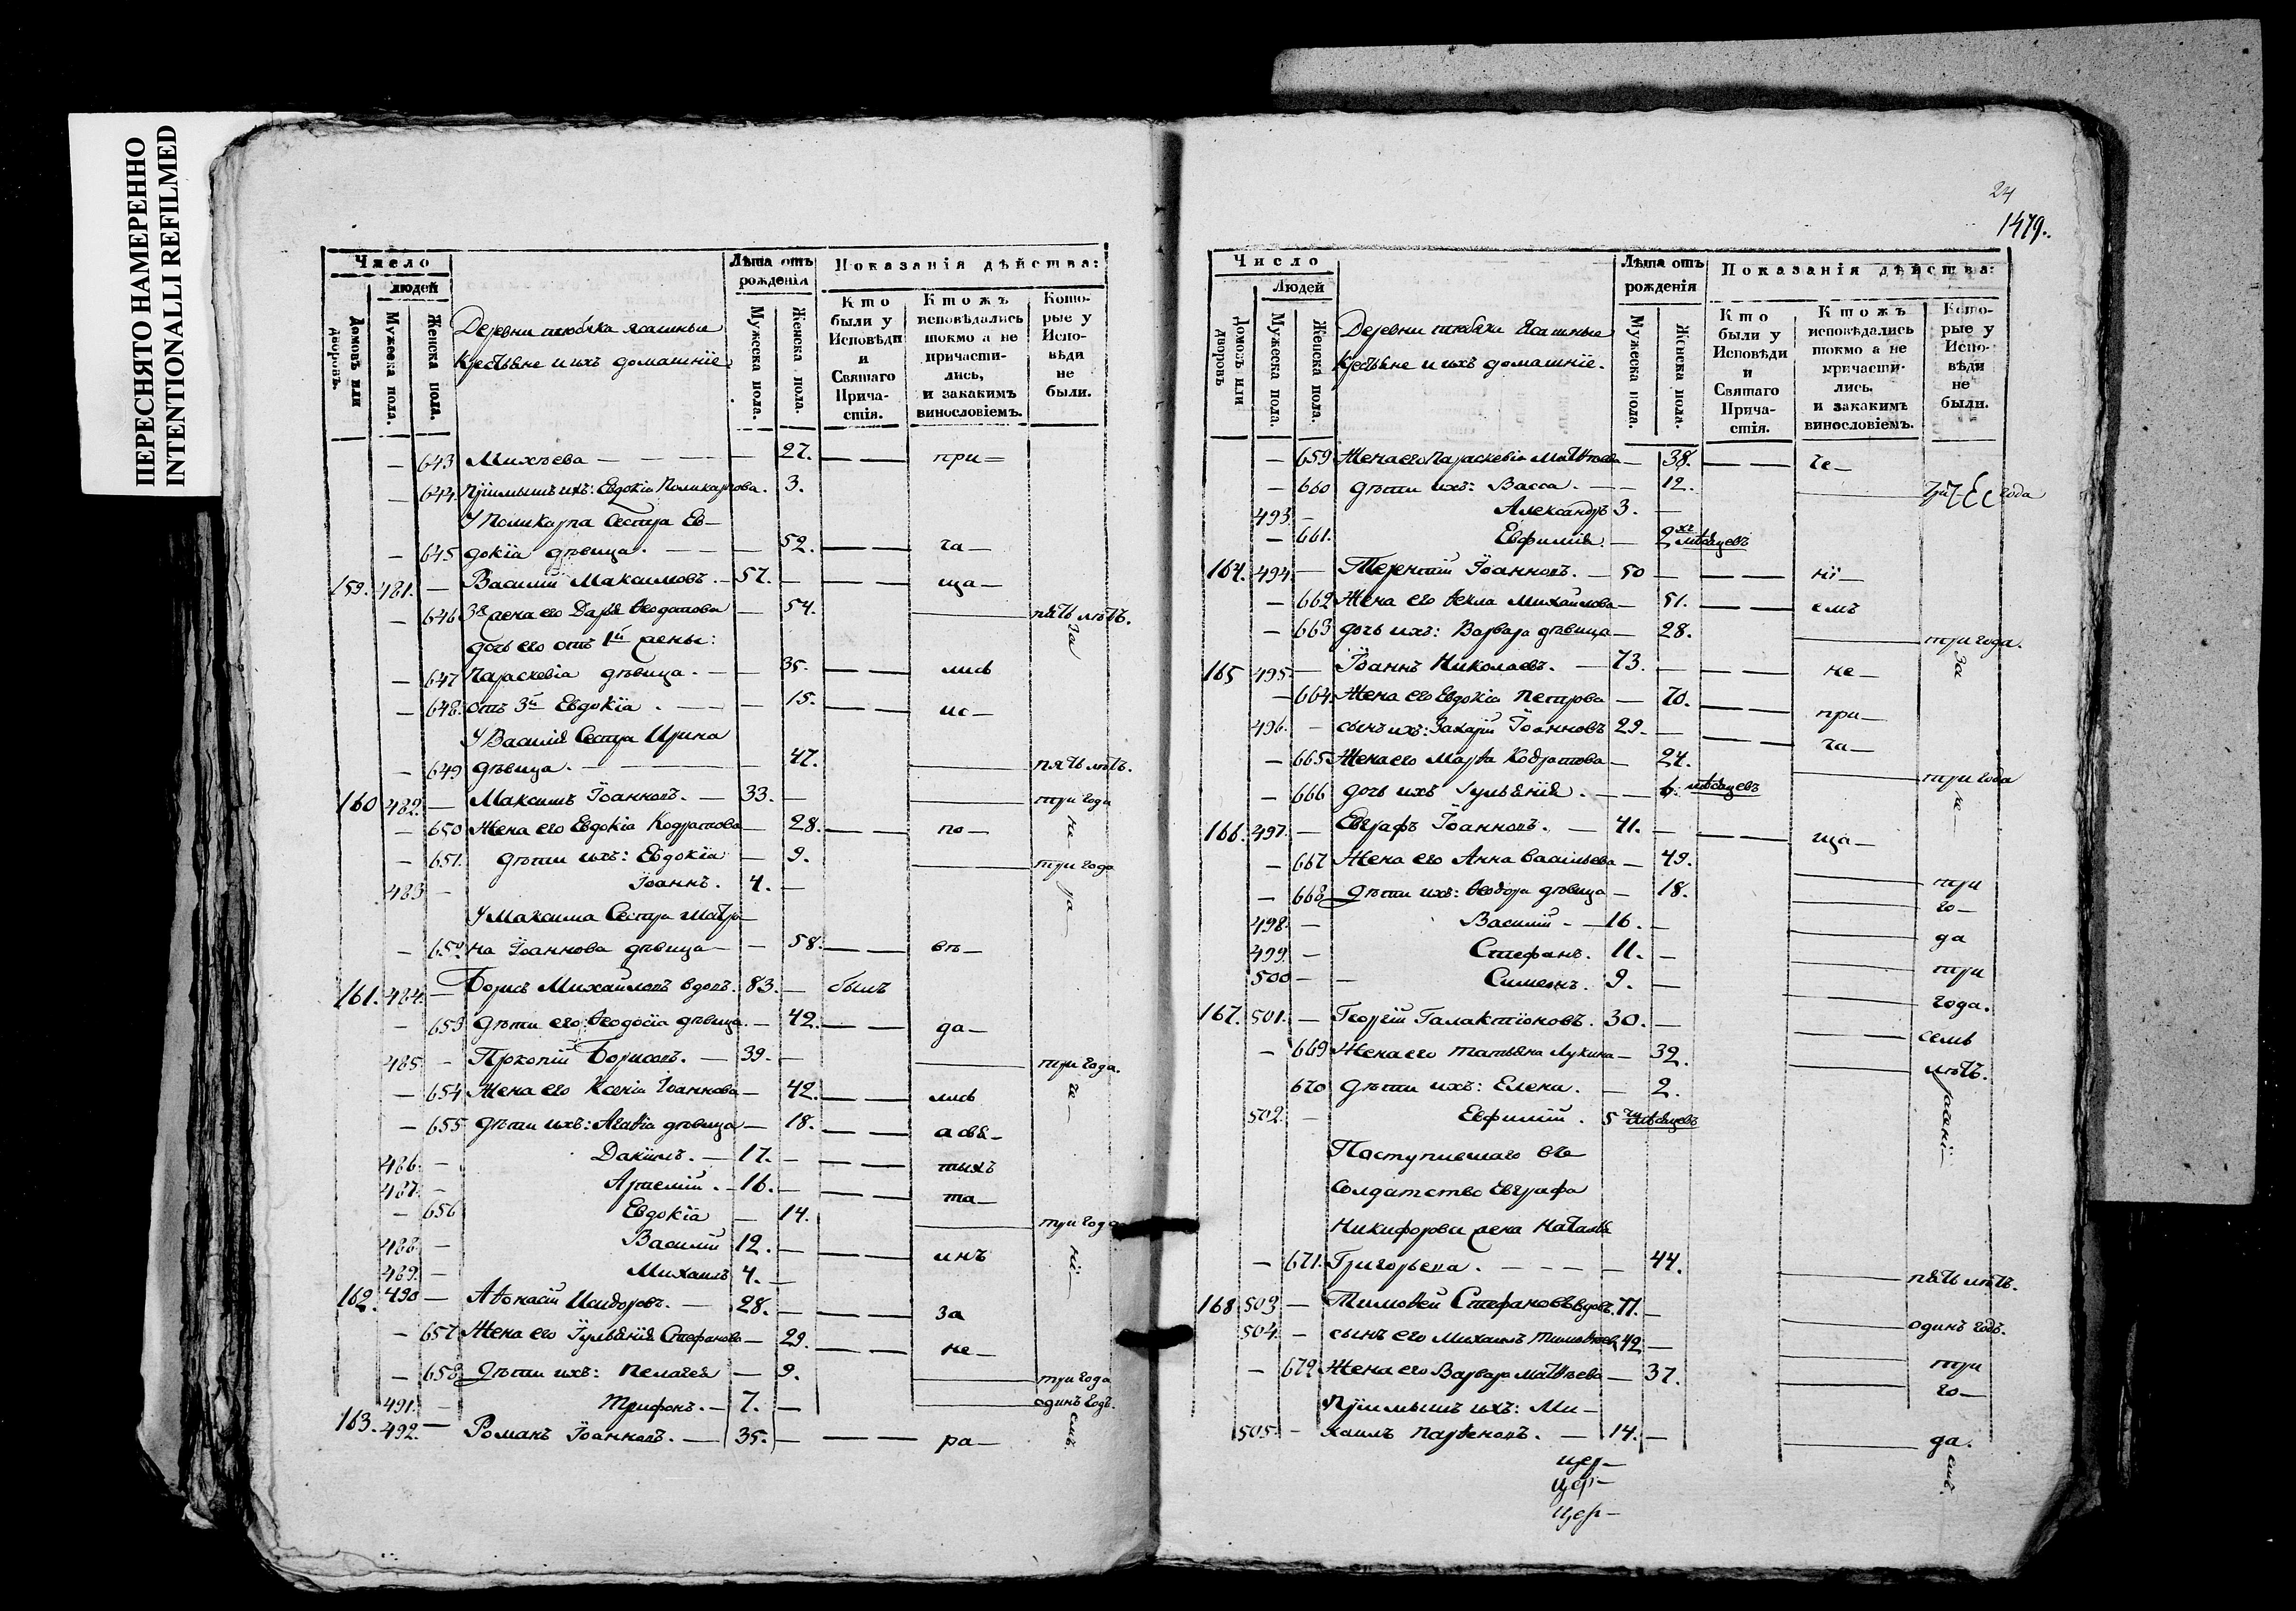 ПЕРЕСНЯТО НАМЕРЕННО
INTENTIONALLI REFILMED
Число
людей
Домовъ или дворовъ.
Мужеска пола.
Женска пола.
Деревни тюбяка ясашныя
Крестьяне и ихъ домашніе
Лѣта отъ рожденія
Мужеска пола.
Женска пола.
Показанія дѣйства:
Кто были у Исповѣди и Святаго Прича-стія.
Ктожъ исповѣдались токмо а не причасти-лись, и закакимъ винословіемъ.
Кото-рые у Испо-вѣди не были.
— 643 Михѣева — — — — 27. — — при=
— 644 Пріимышъ ихъ: Евдокіа Поликарпова. 3.
У Поликарпа Сестра Ев-
— 645 докіа дѣвица. — — — 52. — — ча—
159. 481. — Василій Максимовъ. — 57. — — — ща—
— 646 3я жена его Дарья Ѳеодотова — 54. — пять лѣтъ.
За
дочь его отъ 1й жены:
— 647 Параскевіа дѣвица. — — 35. — — лись
— 648. отъ 3й Евдокіа . — — — 15. — — ис—
У Василія Сестра Ирина
— 649 дѣвица. — — 47. — пять лѣтъ.
160 482. — Максимъ Іоанновъ. — 33. — — три года
— 650 Жена его Евдокіа Кодратова — 28. — — по—
не—
— 651. дѣти ихъ: Евдокіа — 9. — три года
483 — Іоаннъ. 4. —
ра—
У Максима Сестра Матро—
— 652 на Іоаннова дѣвица — — 58. — — вѣ—
161. 484. — Борисъ Михайловъ вдовъ. 83. — былъ
— 653 дѣти его: Ѳеодосіа дѣвица. — 42. — — да—
485. — Прокопій Борисовъ. — 39. — — три года.
— 654 Жена его Ксеніа Іоаннова — 42. — — лись
че—
— 655 дѣти ихъ: Агаѳіа дѣвица — 18. — — а свя—
486. — Даніилъ. — 17. — — — тыхъ
487. — Артемій. — 16. — — — та—
— 656 Евдокіа — 14. — три года
488. — Василій 12. — — — инъ
ні—
489. — Михаилъ 4. —
162. 490 — Аѳонасій Исидоровъ. — 28. — — — за
— 657 Жена его Іульянія Стефанова — 29. — — не—
— 658 Дѣти ихъ: Пелагея — 9. — три года
491. — Трифонъ. — 7. — — одинъ годъ.
163. 492. — Романъ Іоанновъ. — 35. — — — ра—
емъ.
24
1479.
Число
Людей
Домовъ или дворовъ
Мужеска пола.
Женска пола.
Деревни тюбяка Ясашные
Крестьяне и ихъ домашніе.
Лѣта отъ рожденія
Мужеска пола.
Женска пола.
Показанія дѣйства:
Кто были у Исповѣди и Святаго Прича-стія.
Ктожъ исповѣдались токмо а не причасти-лись. и закакимъ винословіемъ.
Кото-рые у Испо-вѣди не были.
— 659 Жена его Параскевіа Матѳѣева — 38. — — че—
— 660 дѣти ихъ: Васса. — — 12. — года
493. — Александръ 3. —
— 661. Евфимія. — 2хъ мѣсяцевъ
164. 494. — Терентій Іоанновъ. — 50 — — — ні—
— 662 Жена его Ѳекла Михайлова — 51. — — емъ
— 663 дочь ихъ: Варвара дѣвица — 28. — три года.
За
165 495 — Іоаннъ Николаевъ. — 73. — — — не—
— 664. Жена его Евдокіа Петрова — 70. — — при—
496. — сынъ ихъ: Захарій Іоанновъ 29. — — — ча—
— 665 Жена его Марѳа Кодратова — 24. — три года
— 666 дочь ихъ Іульянія. — — 6. мѣсяцевъ
не—
166. 497. — Евграфъ Іоанновъ. — 41. — — — ща—
— 667 Жена его Анна Васильева — 49. — три
— 668 Дѣти ихъ: Ѳеодора дѣвица — 18. — го—
498. — Василій — — 16. — — да
499. — Стефанъ. 11. — — три
500 — — Симеонъ. 9. — — года.
167. 501. — Георгій Галактіоновъ. 30. — — семь
— 669 Жена его Татьяна Лукина — 32. — лѣтъ.
670 дѣти ихъ: Елена. — 2.
502. — Евфимій. 5 мѣсяцевъ
раченіі—
Поступившаго въ
солдатство Евграфа
Никифорова жена Наталья
— 671. Григорьева. — — — — 44. — пять лѣтъ.
168 503 — Тимоѳей Стефановъ вдовъ. 77. — — одинъ годъ.
504. — сынъ его Михаилъ Тимоѳеевъ 42 — — три
— 672 Жена его Варвара Матѳѣева — 37. — го—
Пріимышъ ихъ: Ми—
505. — хаилъ Парѳеновъ. — 14. — — да.
емъ.
цер—
цер—
цер—